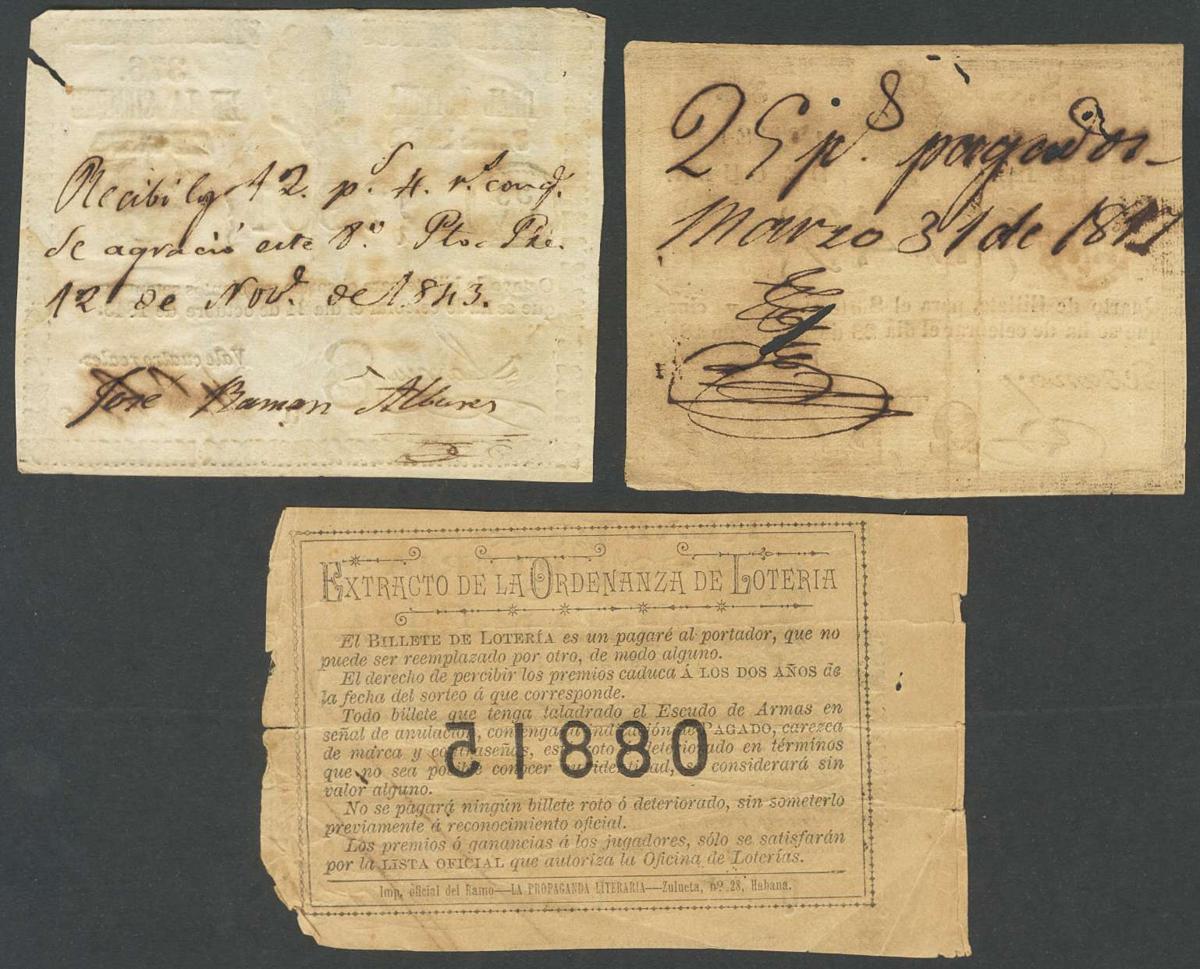 Recibi los 12. p.s 4. r.s conq.e
se agració este v.o Pto. Pe.
12 de Nov.e de 1843.
que se ha de celebrar el dia 14 de octubre de
Vale cuatro reales
José Ramon Albares
25 p.s pagados
Marzo 31 de 1847
Cuarto de Billete para el S
que se ha de celebrar el dia 23
EXTRACTO DE LA ORDENANZA DE LOTERIA
El BILLETE DE LOTERÍA es un pagaré al portador, que no
puede ser reemplazado por otro, de modo alguno.
El derecho de percibir los premios caduca Á LOS DOS AÑOS de
la fecha del sorteo á que corresponde.
Todo billete que tenga taladrado el Escudo de Armas en
señal de anulación, contenga la indicación de PAGADO, carezca
de marca y contraseñas, esté roto ó deteriorado en términos
que no sea posible conocer su identidad, se considerará sin
valor alguno.
51880
No se pagará ningún billete roto ó deteriorado, sin someterlo
previamente á reconocimiento oficial.
Los premios ó ganancias á los jugadores, sólo se satisfarán
por la LISTA OFICIAL que autoriza la Oficina de Loterías.
Imp. oficial del Ramo—LA PROPAGANDA LITERARIA—Zulueta, nº 28, Habana.